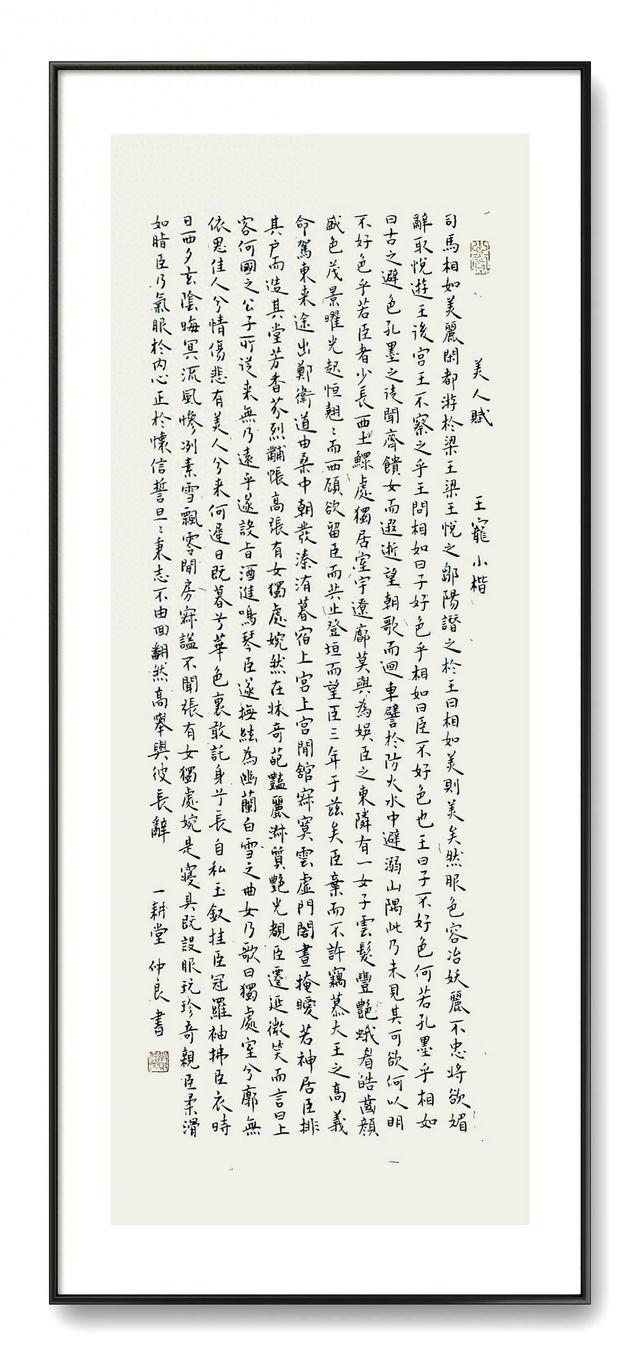 美人賦 王寵小楷
司馬相如美麗閑都游於梁王梁王悅之鄒陽譖之於王曰相如美則美矣然服色容冶妖麗不忠将欲媚
辭取悅遊王後宮王不察之乎王問相如曰子好色乎相如曰臣不好色也王曰子不好色何若孔墨乎相如
曰古之避色孔墨之徒聞齊饋女而遐逝望朝歌而迴車譬於防火水中避溺山隅此乃未見其可欲何以明
不好色乎若臣者少長西土鰥處獨居室宇遼廓莫與為娛臣之東隣有一女子雲髮豐艷蛾眉皓齒顏
盛色茂景曜光起恒翹〻而西顧欲留臣而共止登垣而望臣三年于茲矣臣棄而不許竊慕大王之高義
命駕東来途出鄭衛道由桑中朝發溱洧暮宿上宮上宮閒舘寂寞雲虛門閤晝掩曖若神居臣排
其户而造其堂芳香芬烈黼帳高張有女獨處婉然在牀奇葩豔麗淋質艷光覩臣遷延微笑而言曰上
客何國之公子所従来無乃遠乎遂設旨酒進鳴琴臣遂撫絃為幽蘭白雪之曲女乃歌曰獨處室兮廓無
依思佳人兮情傷悲有美人兮来何遲日既暮兮華色衰敢託身兮長自私玉釵挂臣冠羅袖拂臣衣時
日西夕玄陰晦冥流風惨冽素雪飄零閒房寂謐不聞張有女獨處婉是寝具既設服玩珍奇親臣柔滑
如脂臣乃氣服於内心正於懷信誓旦〻秉志不由回翻然高舉與彼長辭 一耕堂 仲良書